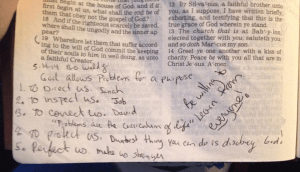 begin at the house of God: and if it
first begin at us, what shall the end be of
them that obey not the gospel of God?
18 And if the righteous scarcely be saved,
where shall the ungodly and the sinner ap-
pear?
19 Wherefore let them that suffer accord-
ing to the will of God commit the keeping
of their souls to him in well doing, as unto
a faithful Creator.
12 By Sil-va'-nus, a faithful brother unto
you, as I suppose, I have written briefly,
exhorting, and testifying that this is the
true grace of God wherein ye stand.
13 The church that is at Bab'-y-lon,
elected together with you, saluteth you;
and so doth Mar-cus my son.
14 Greet ye one another with a kiss of
charity. Peace be with you all that are in
Christ Je-sus. A-men.
God allows Problems for a purpose
1. To Direct us. Jonah
2. To Inspect us. Job
3. To correct us. David
"Problems are the curriculum of life"
4. To protect us. Dumbest thing you can do is disobey God!
5. Perfect us make us stronger
Be willing to
learn from
everyone.